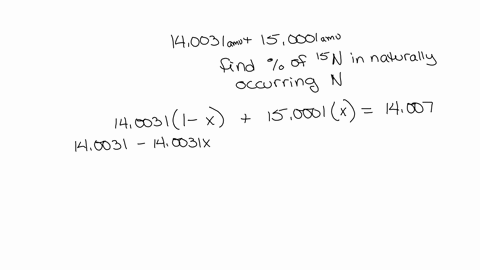 14.0031amu + 15.0001amu
find % of ¹⁵N in naturally
occurring N
14.0031(1-x) + 15.0001(x) = 14.007
14.0031 - 14.0031x